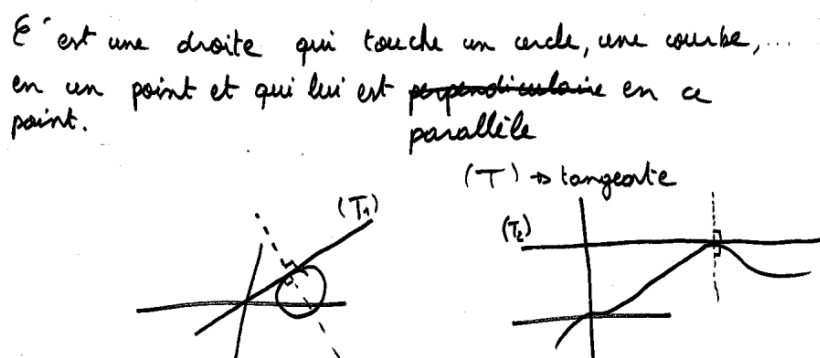 C'est une droite qui touche un cercle, une courbe,...
en un point et qui lui est perpendiculaire en ce
point.
parallèle
(T) → tangeante
(T1)
(T2)